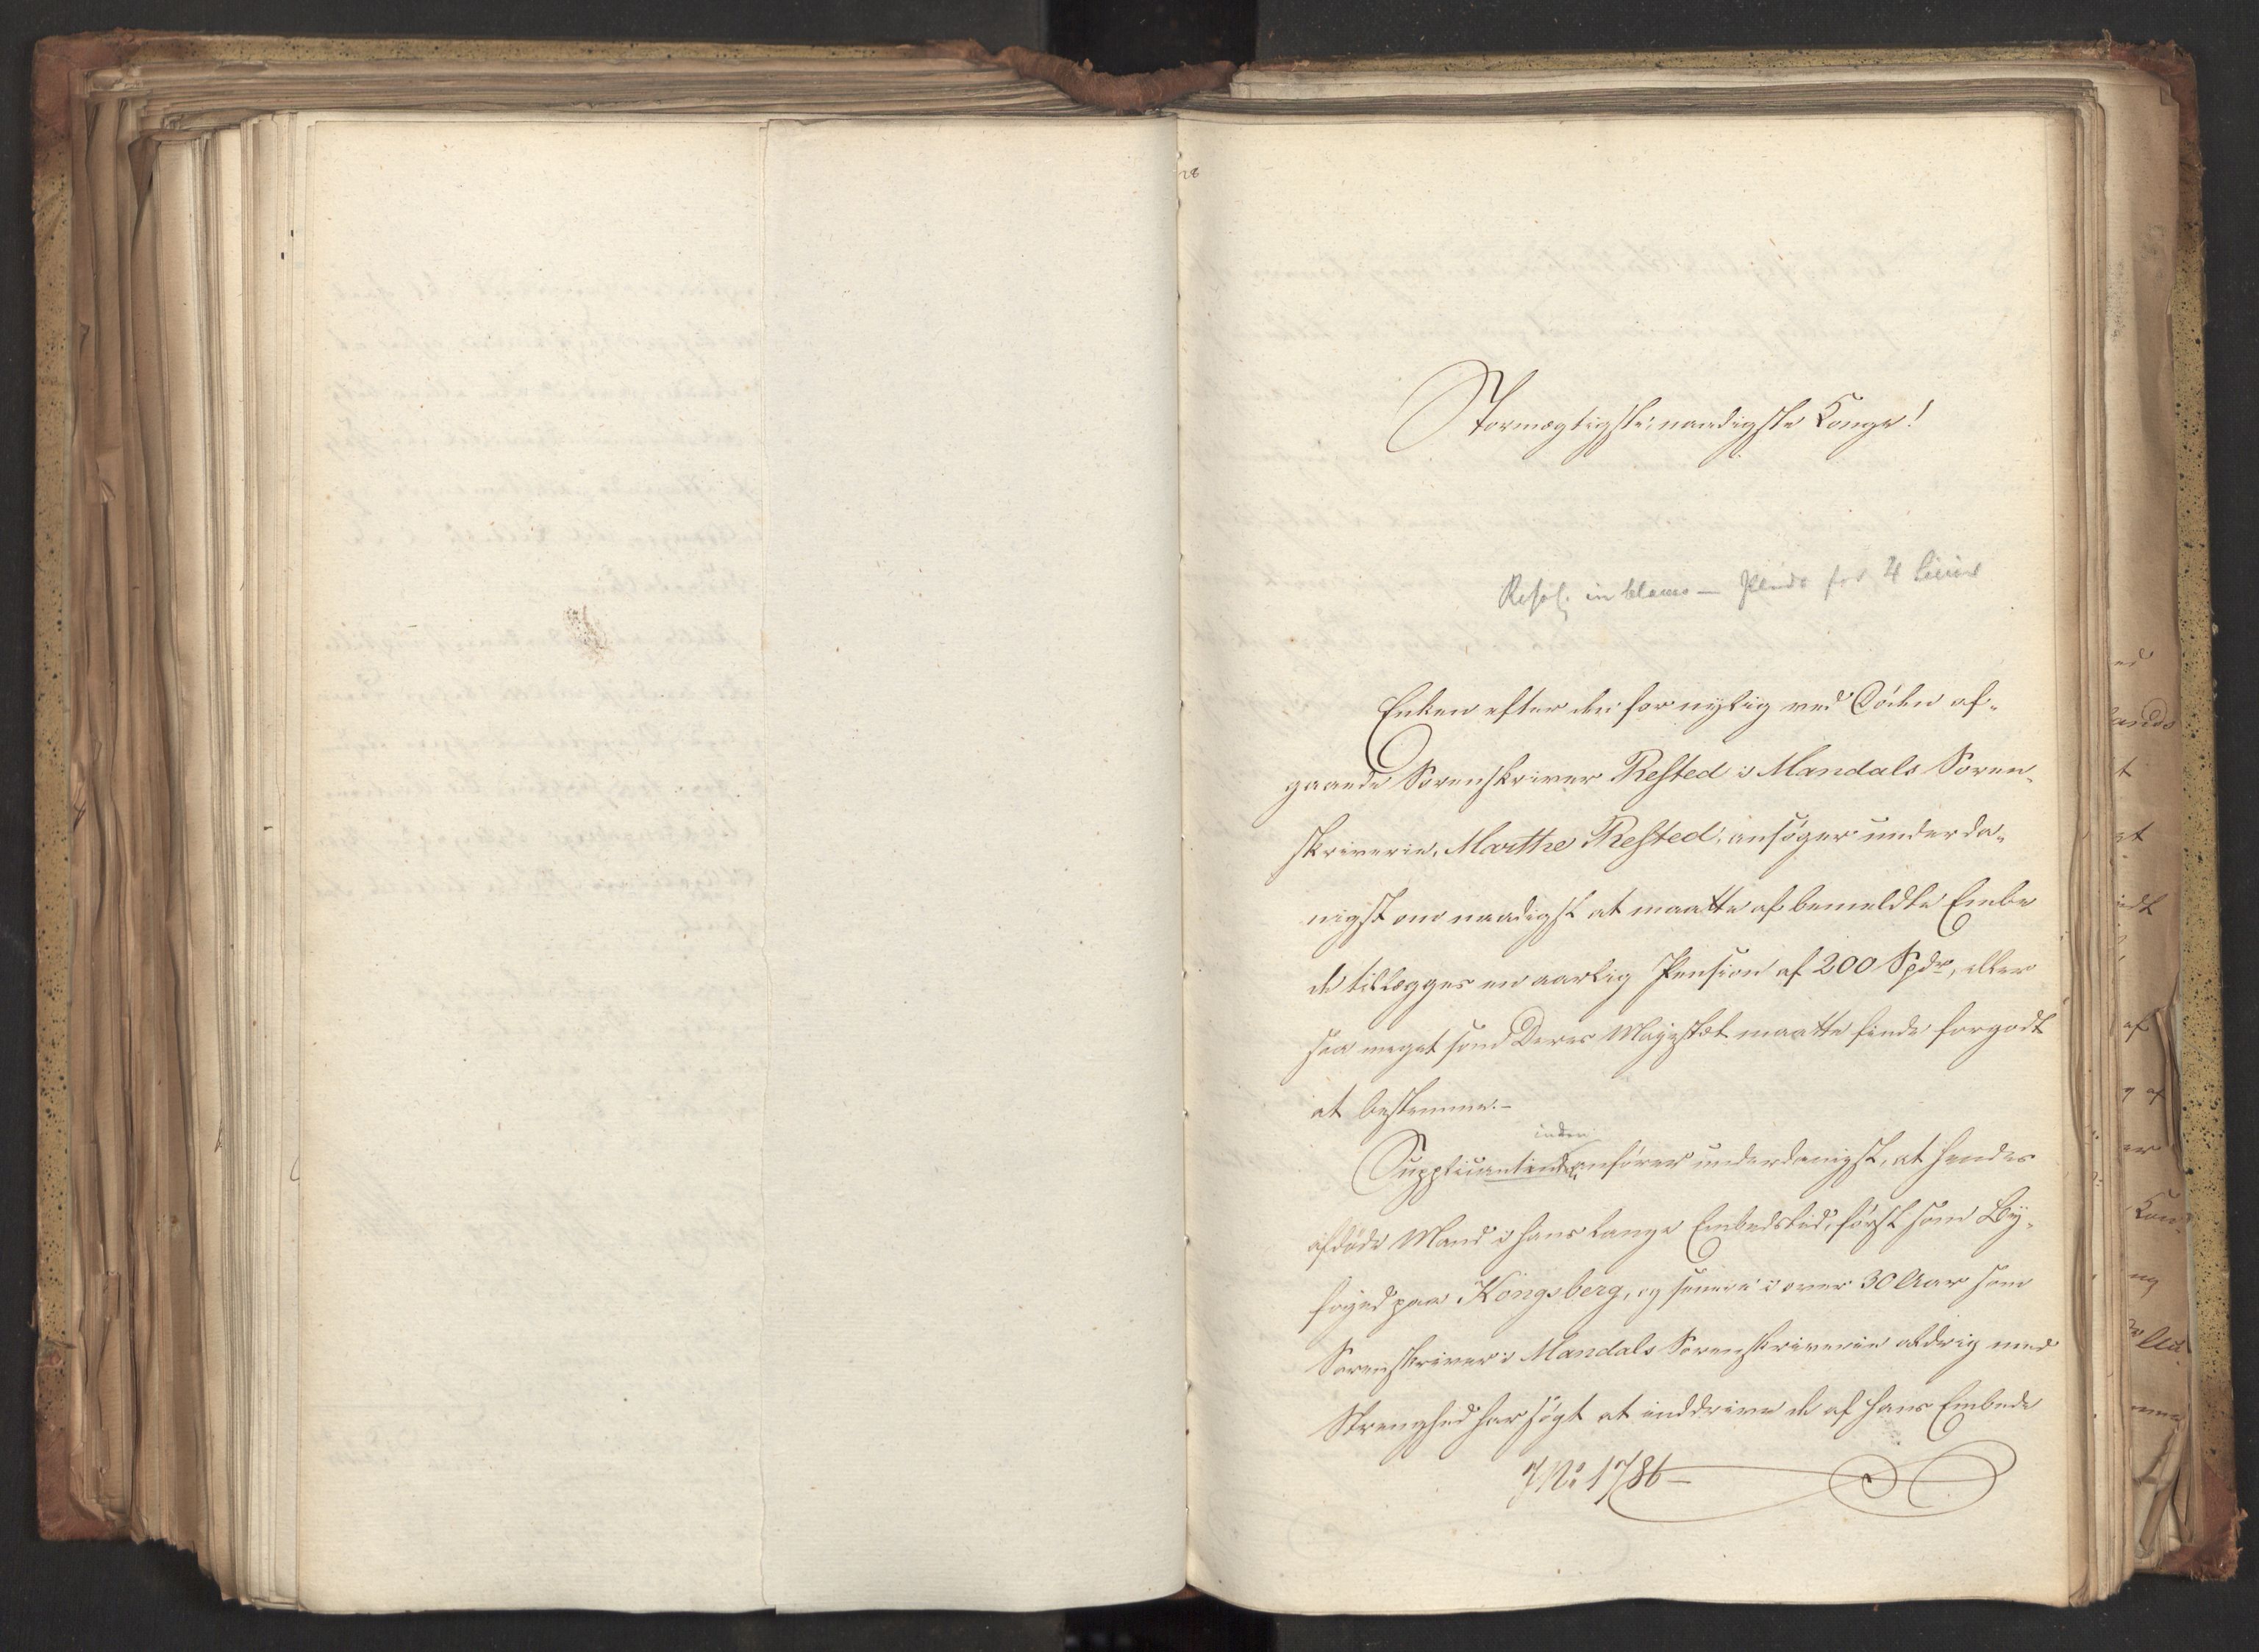 Stormægtigste, naadigste Konge!
Resol. in blanco — Plads for 4 Linier
Enken efter den for nylig ved Døden af-
gaaende Sorenskriver Rested i Mandals Soren-
skriverie, Marthe Rested, ansøger underda-
nigst om naadigst at maatte af bemeldte Embe
de tillægges en aarlig Pension af 200 Spdr, eller
saa meget som Deres Majestæt maatte finde forgodt
at bestemme.-
inden
Supplicantinden anfører underdanigst, at hendes
afdøde Mand i hans lange Embedstid, først som By-
foged paa Kongsberg, og senere i over 30 Aar som
Sorenskriver i Mandals Sorenskriverie aldrig med
Strenghed har søgt at inddrive de af hans Embede
No 1786-